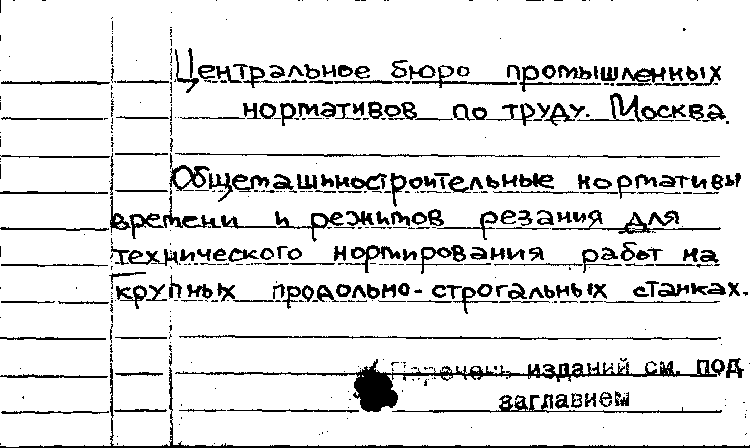 Центральное бюро промышленных
нормативов по труду. Москва.
Общемашиностроительные нормативы
времени и режимов резания для
технического нормирования работ на
крупных продольно-строгальных станках.
Перечень изданий см. под
заглавием